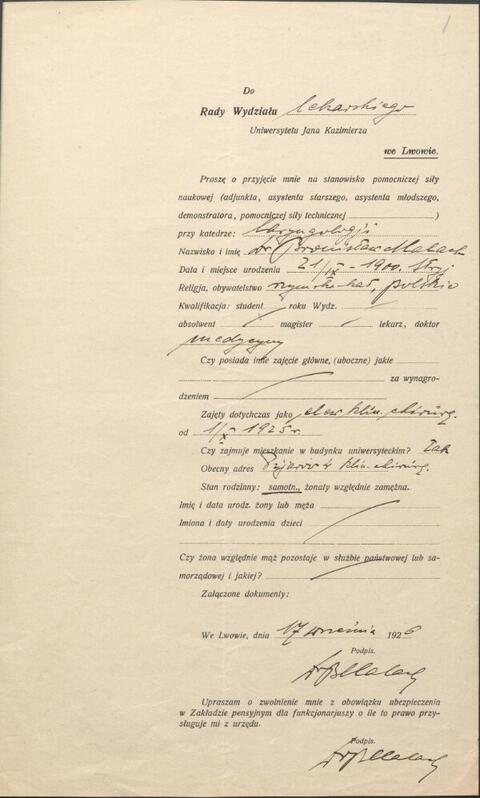 1
Do
Rady Wydziału lekarskiego
Uniwersytetu Jana Kazimierza
we Lwowie.
Proszę o przyjęcie mnie na stanowisko pomocniczej siły
naukowej (adjunkta, asystenta starszego, asystenta młodszego,
demonstratora, pomocniczej siły technicznej )
przy katedrze: laryngologji
Nazwisko i imię dr Bronisław Malach
Data i miejsce urodzenia 21/IX - 1900. Stryj
Religja, obywatelstwo rzymsko kat, polskie
Kwalifikacja: student roku Wydz.
absolwent magister lekarz, doktor
medycyny
Czy posiada inne zajęcie główne, (uboczne) jakie
za wynagro-
dzeniem
Zajęty dotychczas jako elew klin. chirurg.
od 1/X 1925 r.
Czy zajmuje mieszkanie w budynku uniwersyteckim? Tak
Obecny adres Pijarów 4 klin. chirurg.
Stan rodzinny: samotn., żonaty względnie zamężna.
Imię i data urodz. żony lub męża
Imiona i daty urodzenia dzieci
Czy żona względnie mąż pozostaje w służbie państwowej lub sa-
morządowej i jakiej?
Załączone dokumenty:
We Lwowie, dnia 17 września 1926
Podpis.
Dr B Malach
Upraszam o zwolnienie mnie z obowiązku ubezpieczenia
w Zakładzie pensyjnym dla funkcjonarjuszy o ile to prawo przy-
sługuje mi z urzędu.
Podpis.
Dr B Malach